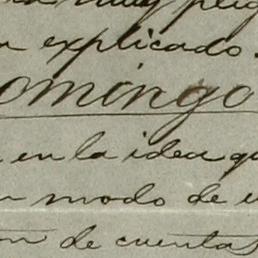 muy
explicado.
omingo
en la idea qu
modo de
on de cuentas